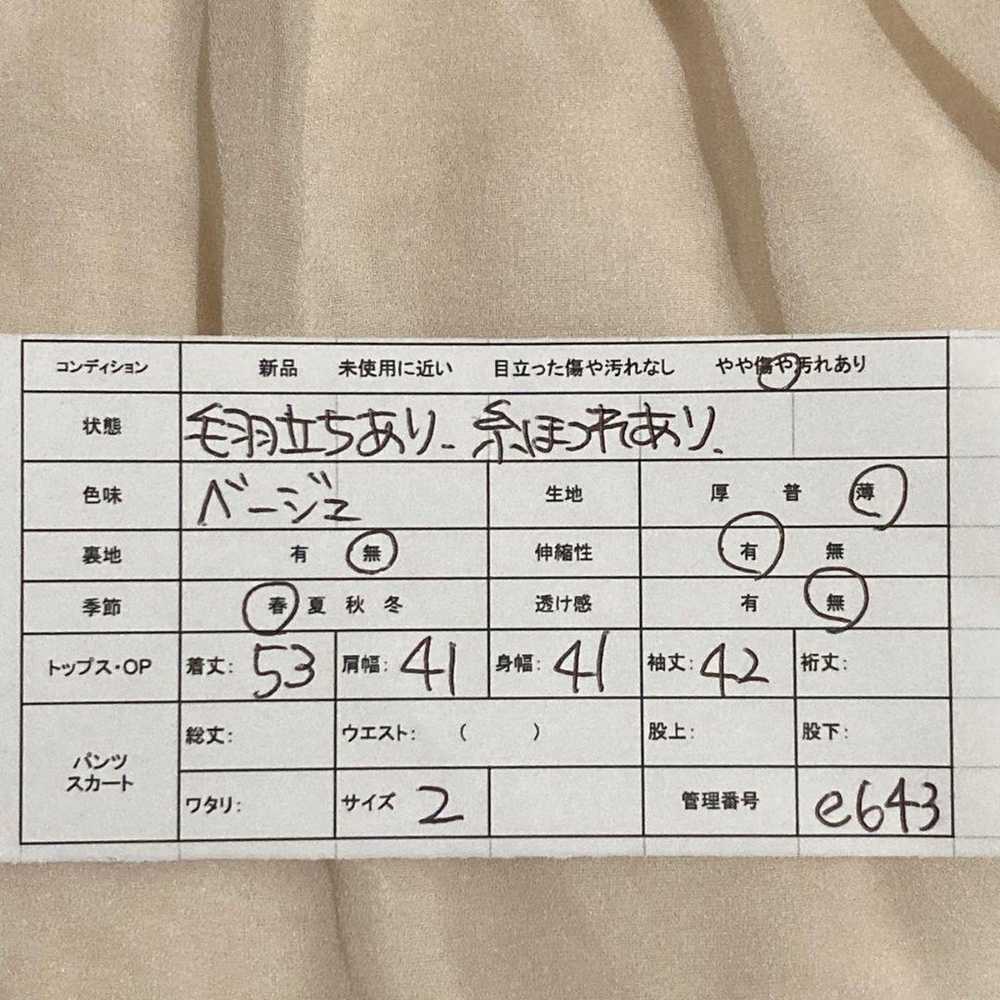 コンディション 新品 未使用に近い 目立った傷や汚れなし やや傷や汚れあり
状態 毛羽立ちあり、糸ほつれあり、
色味 ベージュ 生地 厚 普 薄
裏地 有 無 伸縮性 有 無
季節 春 夏 秋 冬 透け感 有 無
トップス・OP 着丈: 53 肩幅: 41 身幅: 41 袖丈: 42 裄丈:
パンツ スカート 総丈: ウエスト: ( ) 股上: 股下:
ワタリ: サイズ 2 管理番号 e643